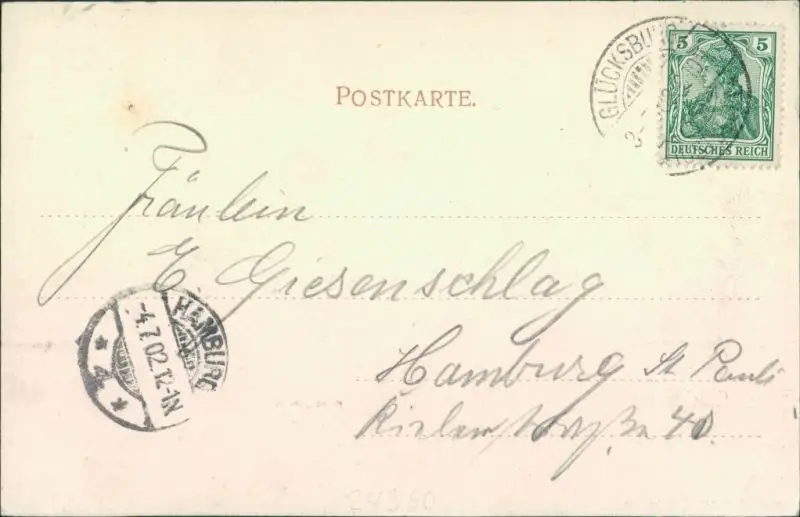 POSTKARTE.
GLÜCKSBURG
5 5
DEUTSCHES REICH
Fräulein
E Giesenschlag
Hamburg St Pauli
Kielerstraße 40.
HAMBURG
-4.7.02.12-1N
* 4 *
24980